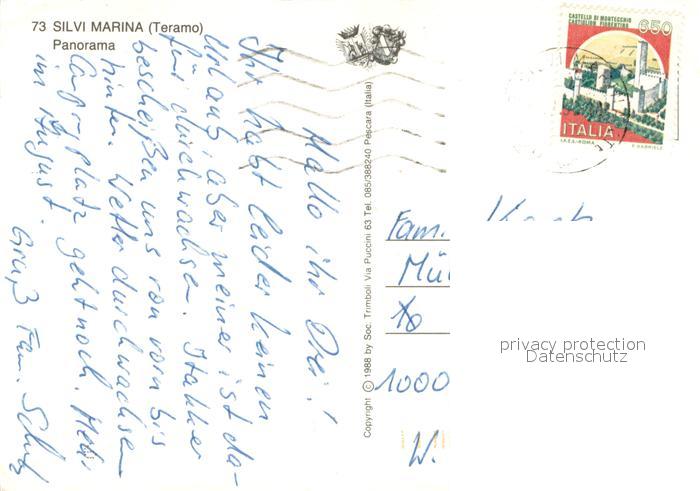 73 SILVI MARINA (Teramo)
Panorama
Hallo ihr Drei!
Ihr habt leider keinen
Urlaub aber meiner ist da-
für durchwachsen. Itakker
bescheißen uns von vorn bis
hinten. Wetter durchwachsen
Campingplatz geht noch. Heiß
im August.
Gruß Fam.
Copyright © 1988 by Soc. Trimboli Via Puccini 63 Tel. 085/388240 Pescara (Italia)
CASTELLO DI MONTECCHIO
CASTIGLION FIORENTINO
650
ITALIA
I.P.Z.S.-ROMA
Fam.
Mü
1000
W.
privacy protection
Datenschutz